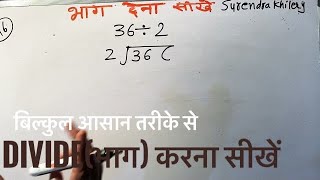 भाग देना सीखें Surendra Khilery
36÷2
2 36 (
बिल्कुल आसान तरीके से
DIVIDE(भाग) करना सीखें